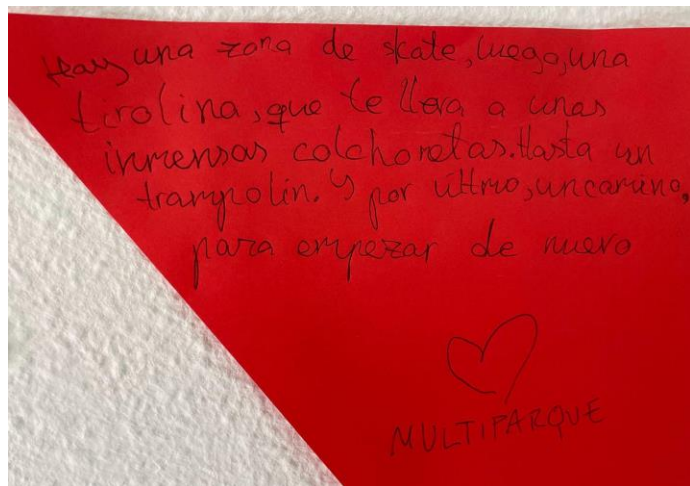 Hay una zona de skate, luego, una
tirolina, que te lleva a unas
inmensas colchonetas. Hasta un
trampolin. Y por último, un camino,
para empezar de nuevo
MULTIPARQUE